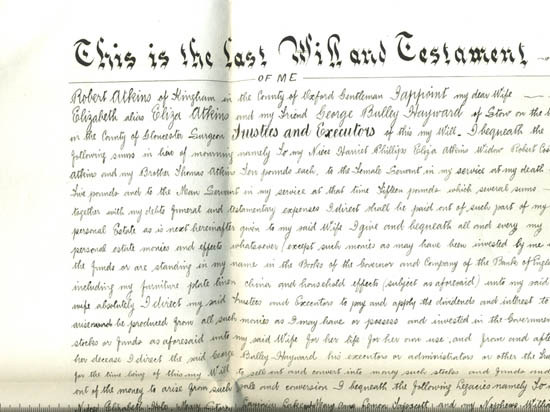 This is the last Will and Testament
OF ME
Robert Atkins of Kingham in the County of Oxford Gentleman I appoint my dear Wife
Elizabeth alias Eliza Atkins and my Friend George Bulley Hayward of Stow on the
in the County of Gloucester Surgeon Trustees and Executors of this my Will I bequeath the
following sums in lieu of mourning namely To my Niece Harriet Phillips Eliza Atkins Widow Robert
Atkins and my Brother Thomas Atkins Ten pounds each, to the Female Servant in my service at my death
Five pounds and to the Man Servant in my service at that time Fifteen pounds which several sums
together with my debts funeral and testamentary expenses I direct shall be paid out of such part of my
personal Estate as is next hereinafter given to my said Wife I give and bequeath all and every my
personal estate monies and effects whatsoever (except such monies as may have been invested by me
the funds or are standing in my name in the Books of the Governor and Company of the Bank of
including my furniture plate linen china and household effects (subject as aforesaid) unto my said
wife absolutely I direct my said Trustees and Executors to pay and apply the dividends and interest to
arise be produced from all such monies as I may have or possess and invested in the
stocks or funds as aforesaid unto my said Wife for her life for her own use and from and after
her decease I direct the said George Bulley Hayward his executors or administrators or other the
for the time being of this my Will to sell out and convert into money such stocks and funds and
out of the money to arise from such sale and conversion I bequeath the following legacies namely To
Niece Elizabeth and Nephews